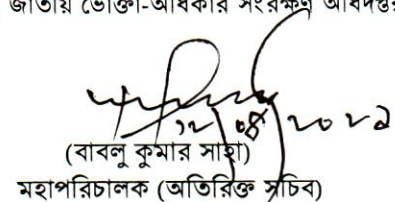 জাতীয় ভোক্তা-অধিকার সংরক্ষণ অধিদপ্তর
(বাবলু কুমার সাহা)
মহাপরিচালক (অতিরিক্ত সচিব)